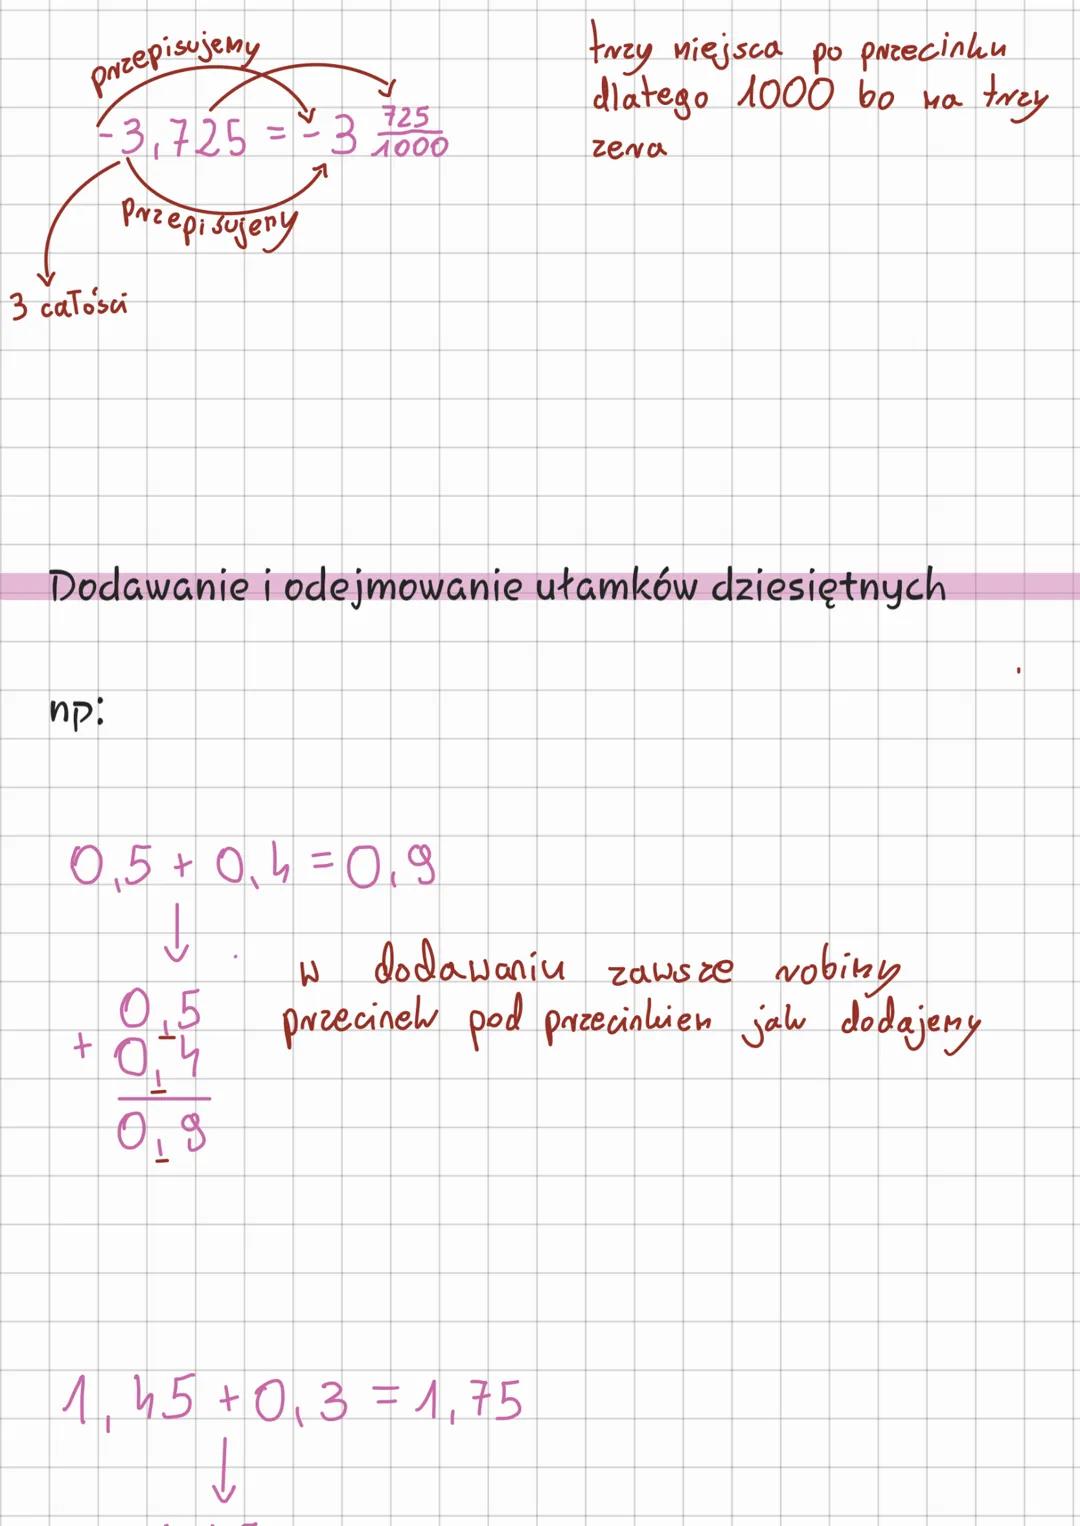 przepisujemy
-3,725 = -3 725/1000
przepisujemy
3 całości
trzy miejsca po przecinku
dlatego 1000 bo ma trzy
zera
Dodawanie i odejmowanie ułamków dziesiętnych
np:
0,5 + 0,4 = 0,9
0,5
+ 0,4
0,9
w dodawaniu zawsze robimy
przecinek pod przecinkiem jak dodajemy
1,45 + 0,3 = 1,75